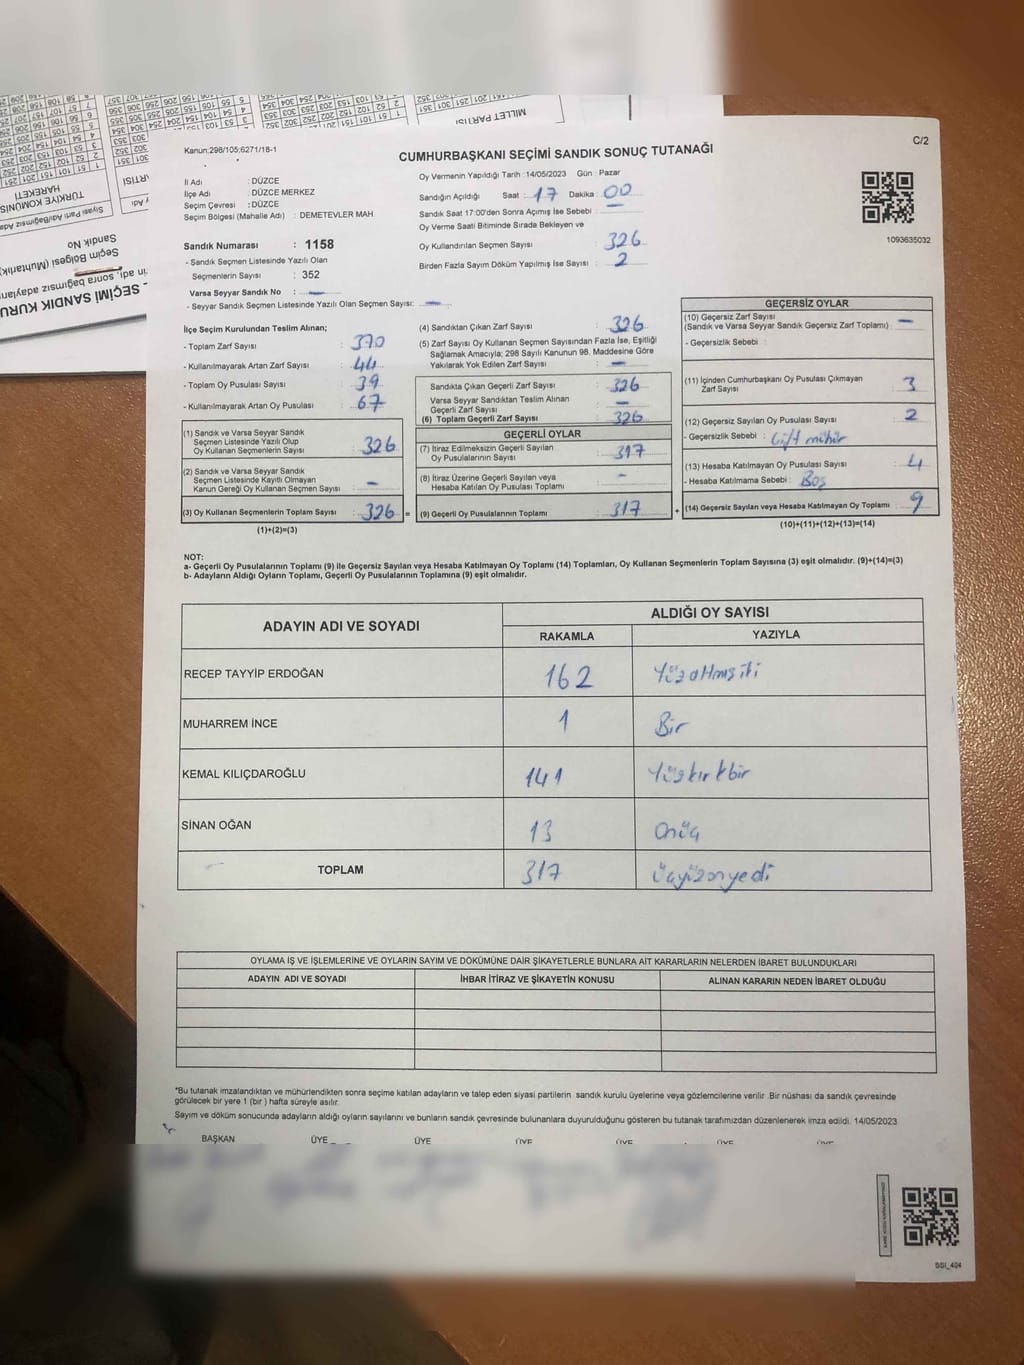 Kanun:298/105;6271/18-1
C/2
CUMHURBAŞKANI SEÇİMİ SANDIK SONUÇ TUTANAĞI
İl Adı : DÜZCE
İlçe Adı : DÜZCE MERKEZ
Seçim Çevresi : DÜZCE
Seçim Bölgesi (Mahalle Adı) : DEMETEVLER MAH.
Oy Vermenin Yapıldığı Tarih : 14/05/2023 Gün : Pazar
Sandığın Açıldığı Saat : 17 Dakika : 00
Sandık Saat 17:00'den Sonra Açımış İse Sebebi : —
Oy Verme Saati Bitiminde Sırada Bekleyen ve
Oy Kullandırılan Seçmen Sayısı : 326
Birden Fazla Sayım Döküm Yapılmış İse Sayısı : 2
1093635032
Sandık Numarası : 1158
- Sandık Seçmen Listesinde Yazılı Olan
Seçmenlerin Sayısı : 352
Varsa Seyyar Sandık No : —
- Seyyar Sandık Seçmen Listesinde Yazılı Olan Seçmen Sayısı: —
İlçe Seçim Kurulundan Teslim Alınan;
- Toplam Zarf Sayısı : 370
- Kullanılmayarak Artan Zarf Sayısı : 44
- Toplam Oy Pusulası Sayısı : 39
- Kullanılmayarak Artan Oy Pusulası : 67
(1) Sandık ve Varsa Seyyar Sandık
Seçmen Listesinde Yazılı Olup
Oy Kullanan Seçmenlerin Sayısı : 326
(2) Sandık ve Varsa Seyyar Sandık
Seçmen Listesinde Kayıtlı Olmayan
Kanun Gereği Oy Kullanan Seçmen Sayısı : —
(3) Oy Kullanan Seçmenlerin Toplam Sayısı : 326 =
(1)+(2)=(3)
(4) Sandıktan Çıkan Zarf Sayısı : 326
(5) Zarf Sayısı Oy Kullanan Seçmen Sayısından Fazla İse, Eşitliği
Sağlamak Amacıyla; 298 Sayılı Kanunun 98. Maddesine Göre
Yakılarak Yok Edilen Zarf Sayısı : —
Sandıkta Çıkan Geçerli Zarf Sayısı : 326
Varsa Seyyar Sandıktan Teslim Alınan
Geçerli Zarf Sayısı : —
(6) Toplam Geçerli Zarf Sayısı : 326
GEÇERLİ OYLAR
(7) İtiraz Edilmeksizin Geçerli Sayılan
Oy Pusulalarının Sayısı : 317
(8) İtiraz Üzerine Geçerli Sayılan veya
Hesaba Katılan Oy Pusulası Toplamı : —
(9) Geçerli Oy Pusulalarının Toplamı : 317 +
GEÇERSİZ OYLAR
(10) Geçersiz Zarf Sayısı
(Sandık ve Varsa Seyyar Sandık Geçersiz Zarf Toplamı) : —
- Geçersizlik Sebebi :
(11) İçinden Cumhurbaşkanı Oy Pusulası Çıkmayan
Zarf Sayısı : 3
(12) Geçersiz Sayılan Oy Pusulası Sayısı : 2
- Geçersizlik Sebebi : Çift mühür
(13) Hesaba Katılmayan Oy Pusulası Sayısı : 4
- Hesaba Katılmama Sebebi : Boş
(14) Geçersiz Sayılan veya Hesaba Katılmayan Oy Toplamı : 9
(10)+(11)+(12)+(13)=(14)
NOT:
a- Geçerli Oy Pusulalarının Toplamı (9) ile Geçersiz Sayılan veya Hesaba Katılmayan Oy Toplamı (14) Toplamları, Oy Kullanan Seçmenlerin Toplam Sayısına (3) eşit olmalıdır. (9)+(14)=(3)
b- Adayların Aldığı Oyların Toplamı, Geçerli Oy Pusulalarının Toplamına (9) eşit olmalıdır.
ADAYIN ADI VE SOYADI ALDIĞI OY SAYISI
RAKAMLA YAZIYLA
RECEP TAYYİP ERDOĞAN 162 Yüzaltmışiki
MUHARREM İNCE 1 Bir
KEMAL KILIÇDAROĞLU 141 Yüzkırkbir
SİNAN OĞAN 13 Onüç
TOPLAM 317 Üçyüzonyedi
OYLAMA İŞ VE İŞLEMLERİNE VE OYLARIN SAYIM VE DÖKÜMÜNE DAİR ŞİKAYETLERLE BUNLARA AİT KARARLARIN NELERDEN İBARET BULUNDUKLARI
ADAYIN ADI VE SOYADI İHBAR İTİRAZ VE ŞİKAYETİN KONUSU ALINAN KARARIN NEDEN İBARET OLDUĞU
*Bu tutanak imzalandıktan ve mühürlendikten sonra seçime katılan adayların ve talep eden siyasi partilerin sandık kurulu üyelerine veya gözlemcilerine verilir .Bir nüshası da sandık çevresinde
görülecek bir yere 1 (bir ) hafta süreyle asılır.
Sayım ve döküm sonucunda adayların aldığı oyların sayılarını ve bunların sandık çevresinde bulunanlara duyurulduğunu gösteren bu tutanak tarafımızdan düzenlenerek imza edildi. 14/05/2023
BAŞKAN ÜYE ÜYE ÜYE ÜYE ÜYE ÜYE
MİLLET PARTİSİ
TÜRKİYE KOMÜNİS
HAREKETİ
Sandık No
Seçim Bölgesi (Muhtarlık